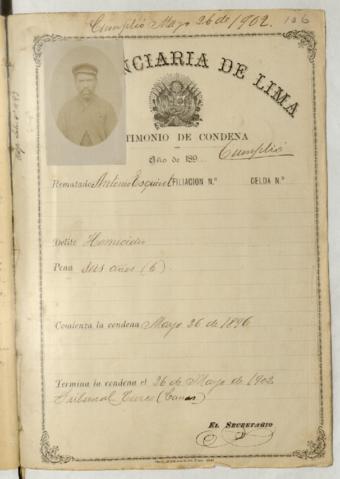 Cumplió Mayo 26 de 1902. 126
NCIARIA DE LIMA
TIMONIO DE CONDENA
Año de 189
Cumplió
Rematado Antonio Esquivel FILIACION N.° CELDA N.°
Delito Homicidio
Pena Seis años (6)
Comienza la condena Mayo 26 de 1896
Termina la condena el 26 de Mayo de 1902
Tribunal Cuzco (Canas)
EL SECRETARIO